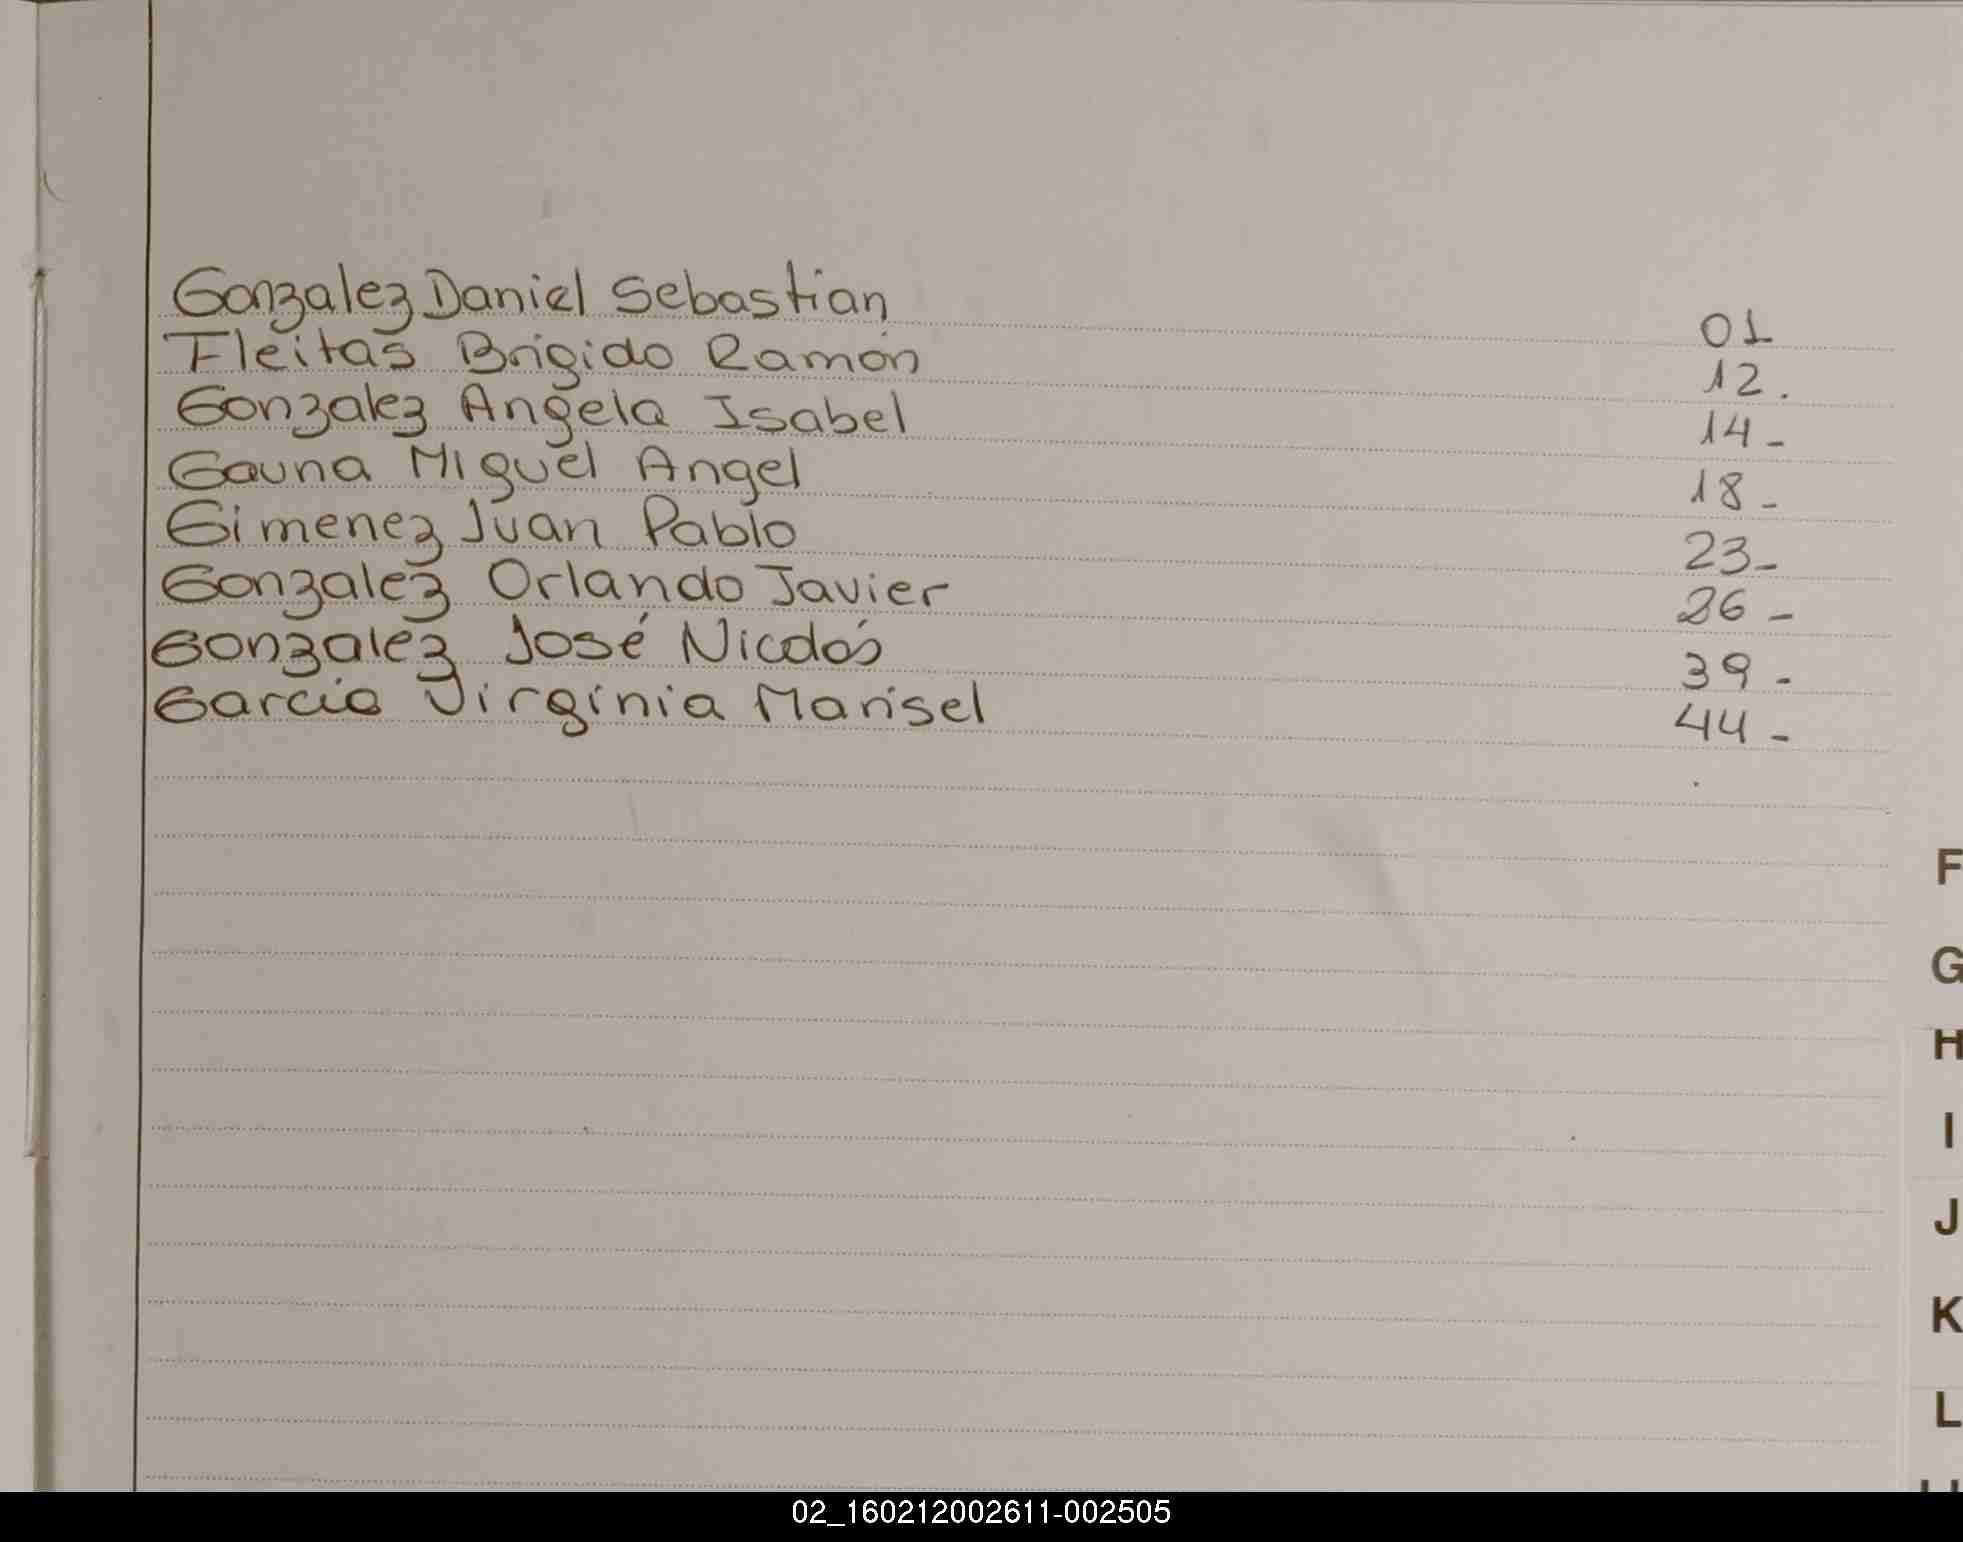 Gonzalez Daniel Sebastian 01
Fleitas Brigido Ramón 12.
Gonzalez Angela Isabel 14-
Gauna Miguel Angel 18-
Gimenez Juan Pablo 23-
Gonzalez Orlando Javier 26-
Gonzalez José Nicolás 39-
Garcia Virginia Marisel 44-
F
G
H
I
J
K
L
02_160212002611-002505